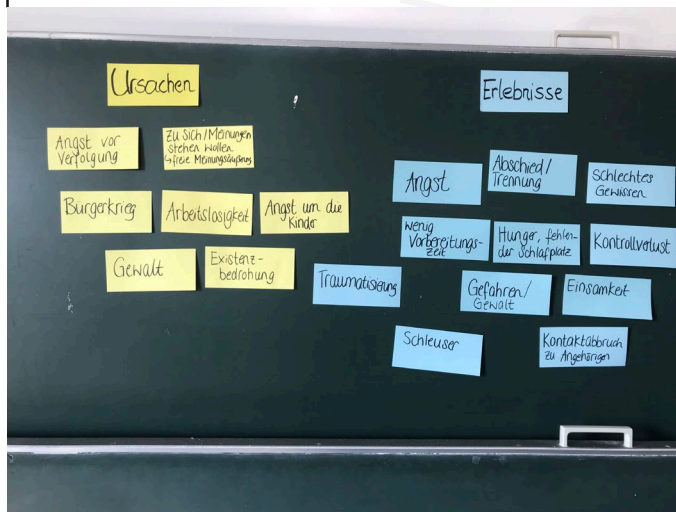 Ursachen
Angst vor
Verfolgung
Zu Sich/Meinungen
stehen wollen
↳freie Meinungsäußerung
Bürgerkrieg
Arbeitslosigkeit
Angst um die
Kinder
Gewalt
Existenz-
bedrohung
Erlebnisse
Angst
Abschied/
Trennung
Schlechtes
Gewissen
wenig
Vorbereitungs-
zeit
Hunger, fehlen-
der Schlafplatz
Kontrollverlust
Traumatisierung
Gefahren/
Gewalt
Einsamkeit
Schleuser
Kontaktabbruch
zu Angehörigen